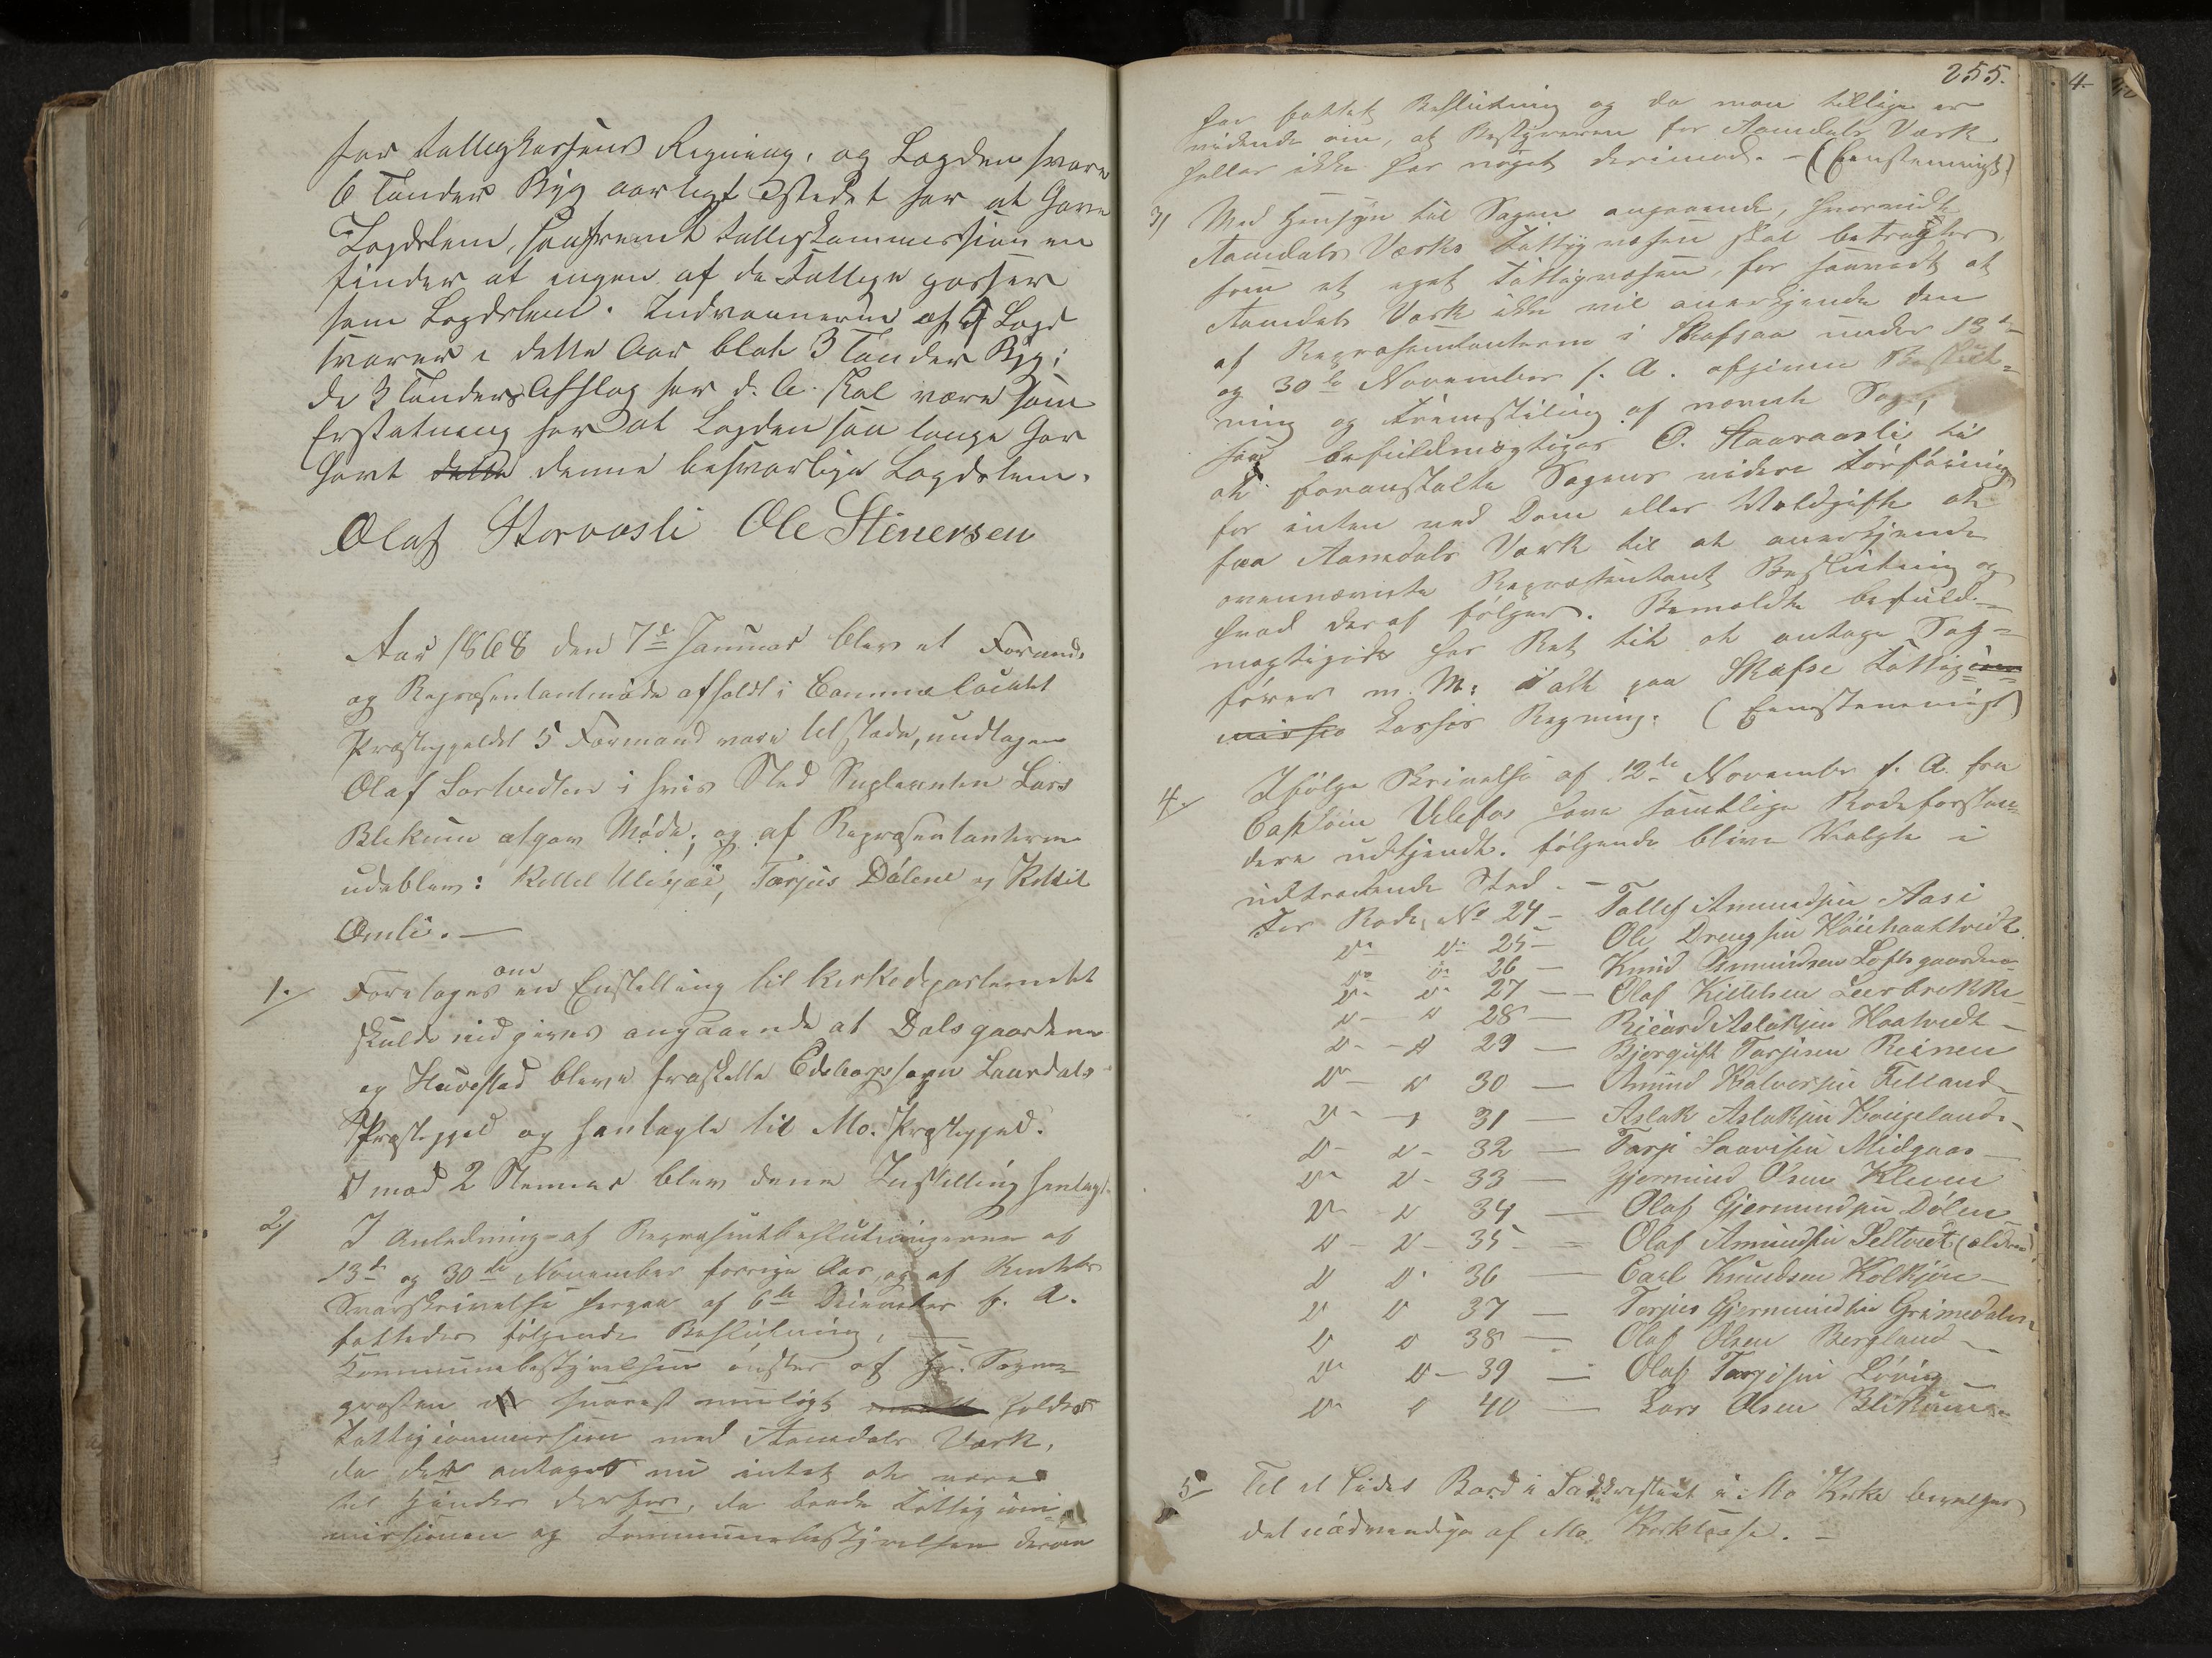 for Fattigkassens Regning, og Lægden svare
6 Tønder Byg aarligt istedet for at have
Lægdslem, saafremt Fattigkommissionen
finder at ingen af de Fattige passer
som Lægdslem. Indvaanerne af Lægd
svarer i dette Aar blot 3 Tønder Byg;
de 3 Tønders Afslag for d. A. skal være som
Erstatning for at Lægden saa længe har
havt dette denne besværlige Lægdslem.
Olaf Storaasli Ole Stenersen
Aar 1868 den 7de Januar blev et Formænds
og Repræsentantmøde afholdt i Commulocalet
Præstegjeldet 5 Formænd vare tilstede, undtagen
Olaf Sortvedten i hvis Sted Suplianten Lars
Blekum afgav Møde; og af Repræsentanterne
udeblev: Kittel Uligjæi, Tarjus Dølene og Kittil
Omli. —
1. Foretoges om en Enstilling til Kirkedepartementet
skulde indgives angaaende at Dalsgaardene
og Huvestad bleve fraskilte Edsborgsogn Laurdals
Præstegjeld og henlagte til Mo. Præstegjeld.
mod 2 Stemmer blev denne Indstilling henlagt.
2) I Anledning af Repræsentbeslutningerne af
13de og 30te November forrige Aar, og af
Svarskrivelse herpaa af 6te December f. A.
fattedes følgende Beslutning, —
Kommunebestyrelsen ønsker af Hr. Sogne-
præsten snarest muligt holdes
Fattigcommission med Aamdals Værk,
da det antages nu intet at være
til Hinder derfor, da baade Fattigcom-
missionen og Kommunebestyrelsen derom
255.
har fattet Beslutning og da man tillige er
vidende om, at Bestyreren for Aamdals Værk
heller ikke har noget derimod. — (Eenstemmigt)
3) Med Hensyn til Sagen angaaende, hvorvidt
Aamdals Værks Fattigvæsen skal betragtes
som et eget Fattigvæsen, for saavidt at
Aamdals Værk ikke vil anerkjende den
af Repræsentanterne i Skafsaa under 13de
og 30te November f. A. afgivne Beslut-
ning og Fremstilling af nævnte Sag,
befuldmægtiges O. Staaraasli til
at foranstalte Sagens videre Forføining
for enten ved Dom eller Voldgift at
faa Aamdals Værk til at anerkjende
ovennævnte Repræsentant Beslutning og
hvad deraf følger. Bemeldte befuld-
mægtigede har Ret til at antage Sag-
fører m. M. alt paa Skafse Fattigcom
missio kasses Regning. (Eenstemmigt)
4. Ifølge Skrivelse af 12te November f. A. fra
Captain Ulefos have samtlige Rodeforstan-
dere udtjendt. følgende blive Valgte i
udtrædende Sted. —
For Rode No 24 — Tallef Amundsen Aasi
D– D– 25 — Ole Drengsen Haatvedt
D– D– 26 — Knud Osmundsen Loftsgaarden
D– D– 27 — Olaf Kittelsen Leerbrekke
D– D 28 — Ricard Aslaksen Haatvedt
D– D 29 — Bjorgulf Tarjesen Reinen
D– D 30 — Amund Halvorsen Felland
D– D 31 — Aslak Aslaksen Haugeland
D– D– 32 — Tarje Saavesen Midgaas
D– D– 33 — Gjermund Olsen Kleven
D– D 34 — Olaf Gjermundsen Dølen
D– D– 35 — Olaf Amundsen Seltveit (ældre)
D D– 36 — Carl Knudsen Kolkjøn
D D 37 — Torjus Gjermundsen Grimedalen
D D 38 — Olaf Olsen Bergland
D– D– 39 — Olaf Targesen Løvig
D– D 40 — Lars Olsen Blekum
5 Til et lidet Bord i Sackrestiet i Mo Kirke bevelges
det nødvendige af Mo. Kirkkasse. —